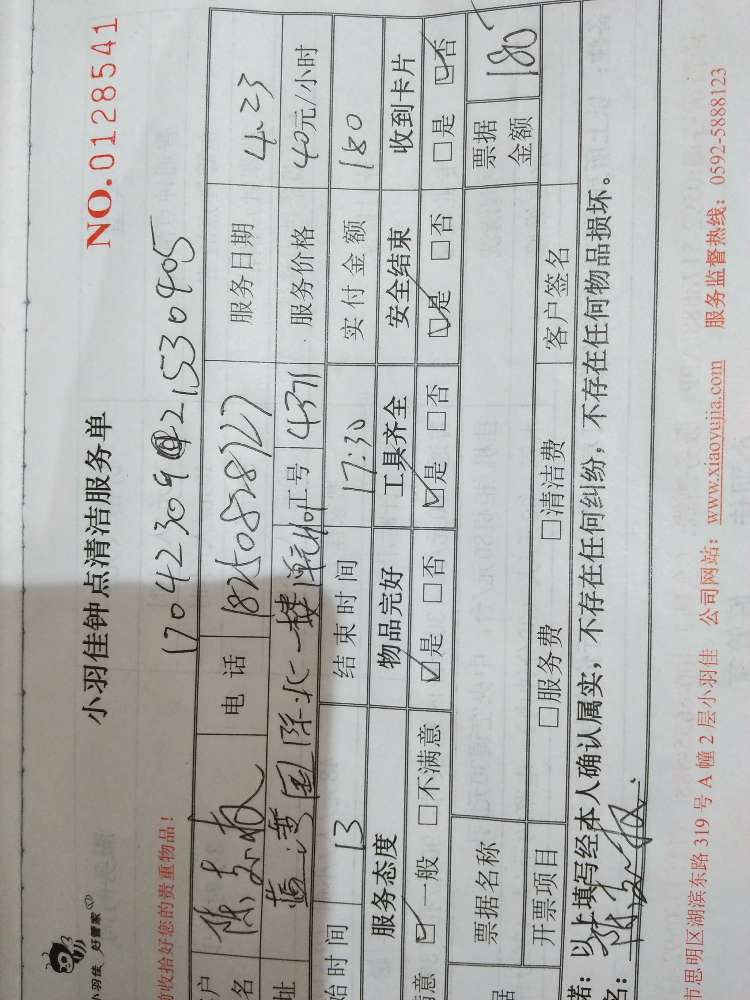 小羽佳 好管家
小羽佳钟点清洁服务单
NO.0128541
前收拾好您的贵重物品！
17042309@21530905
户名 电话 18250878727 服务日期 4.23
址 蓝湾国际北一楼 工号 4371 服务价格 40元/小时
始时间 13 结束时间 17:30 实付金额 180
服务态度 物品完好 工具齐全 安全结束 收到卡片
意 ☑一般 □不满意 ☑是 □否 ☑是 □否 ☑是 □否 □是 ☑否
据 票据名称 票据金额 180
开票项目 □服务费 □清洁费 客户签名
诺：以上填写经本人确认属实，不存在任何纠纷，不存在任何物品损坏。
名：
市思明区湖滨东路 319 号 A 幢 2 层小羽佳 公司网站：www.xiaoyujia.com 服务监督热线：0592-5888123